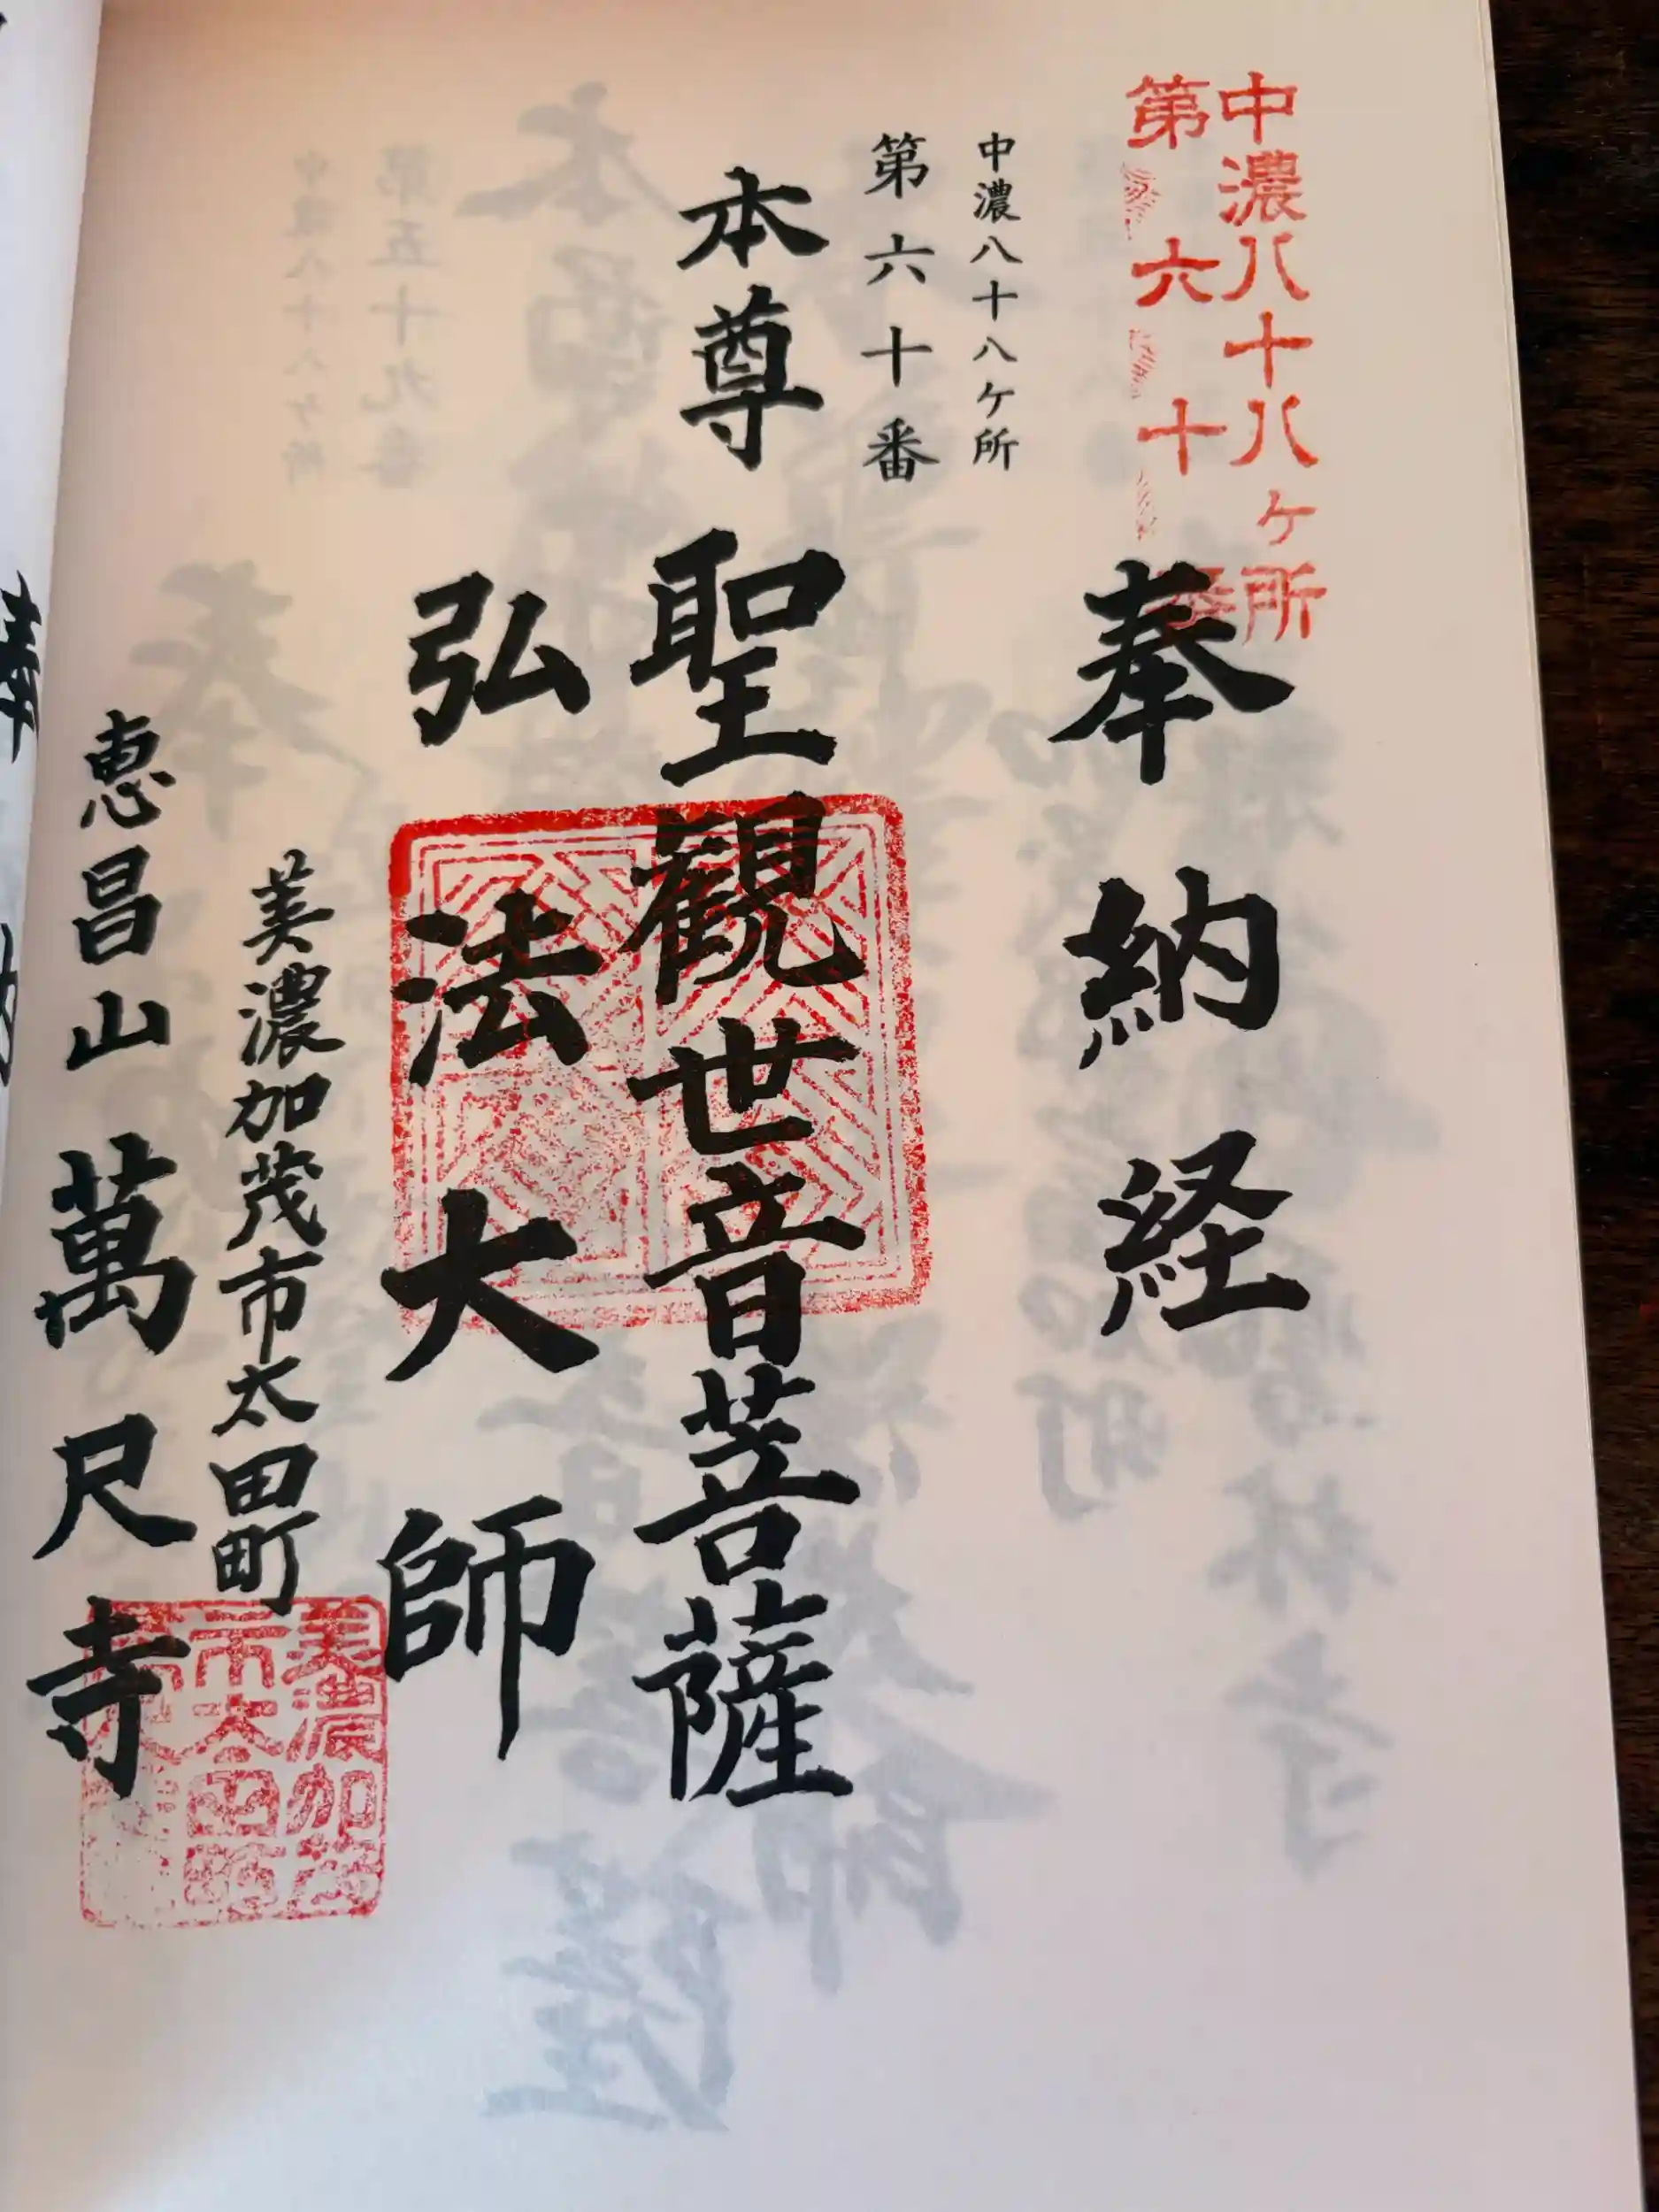 中濃八十八ヶ所
第六十番
奉納経
中濃八十八ヶ所
第六十番
本尊 聖観世音菩薩
弘法大師
美濃加茂市太田町
恵昌山 萬尺寺
美濃加茂
市太田町